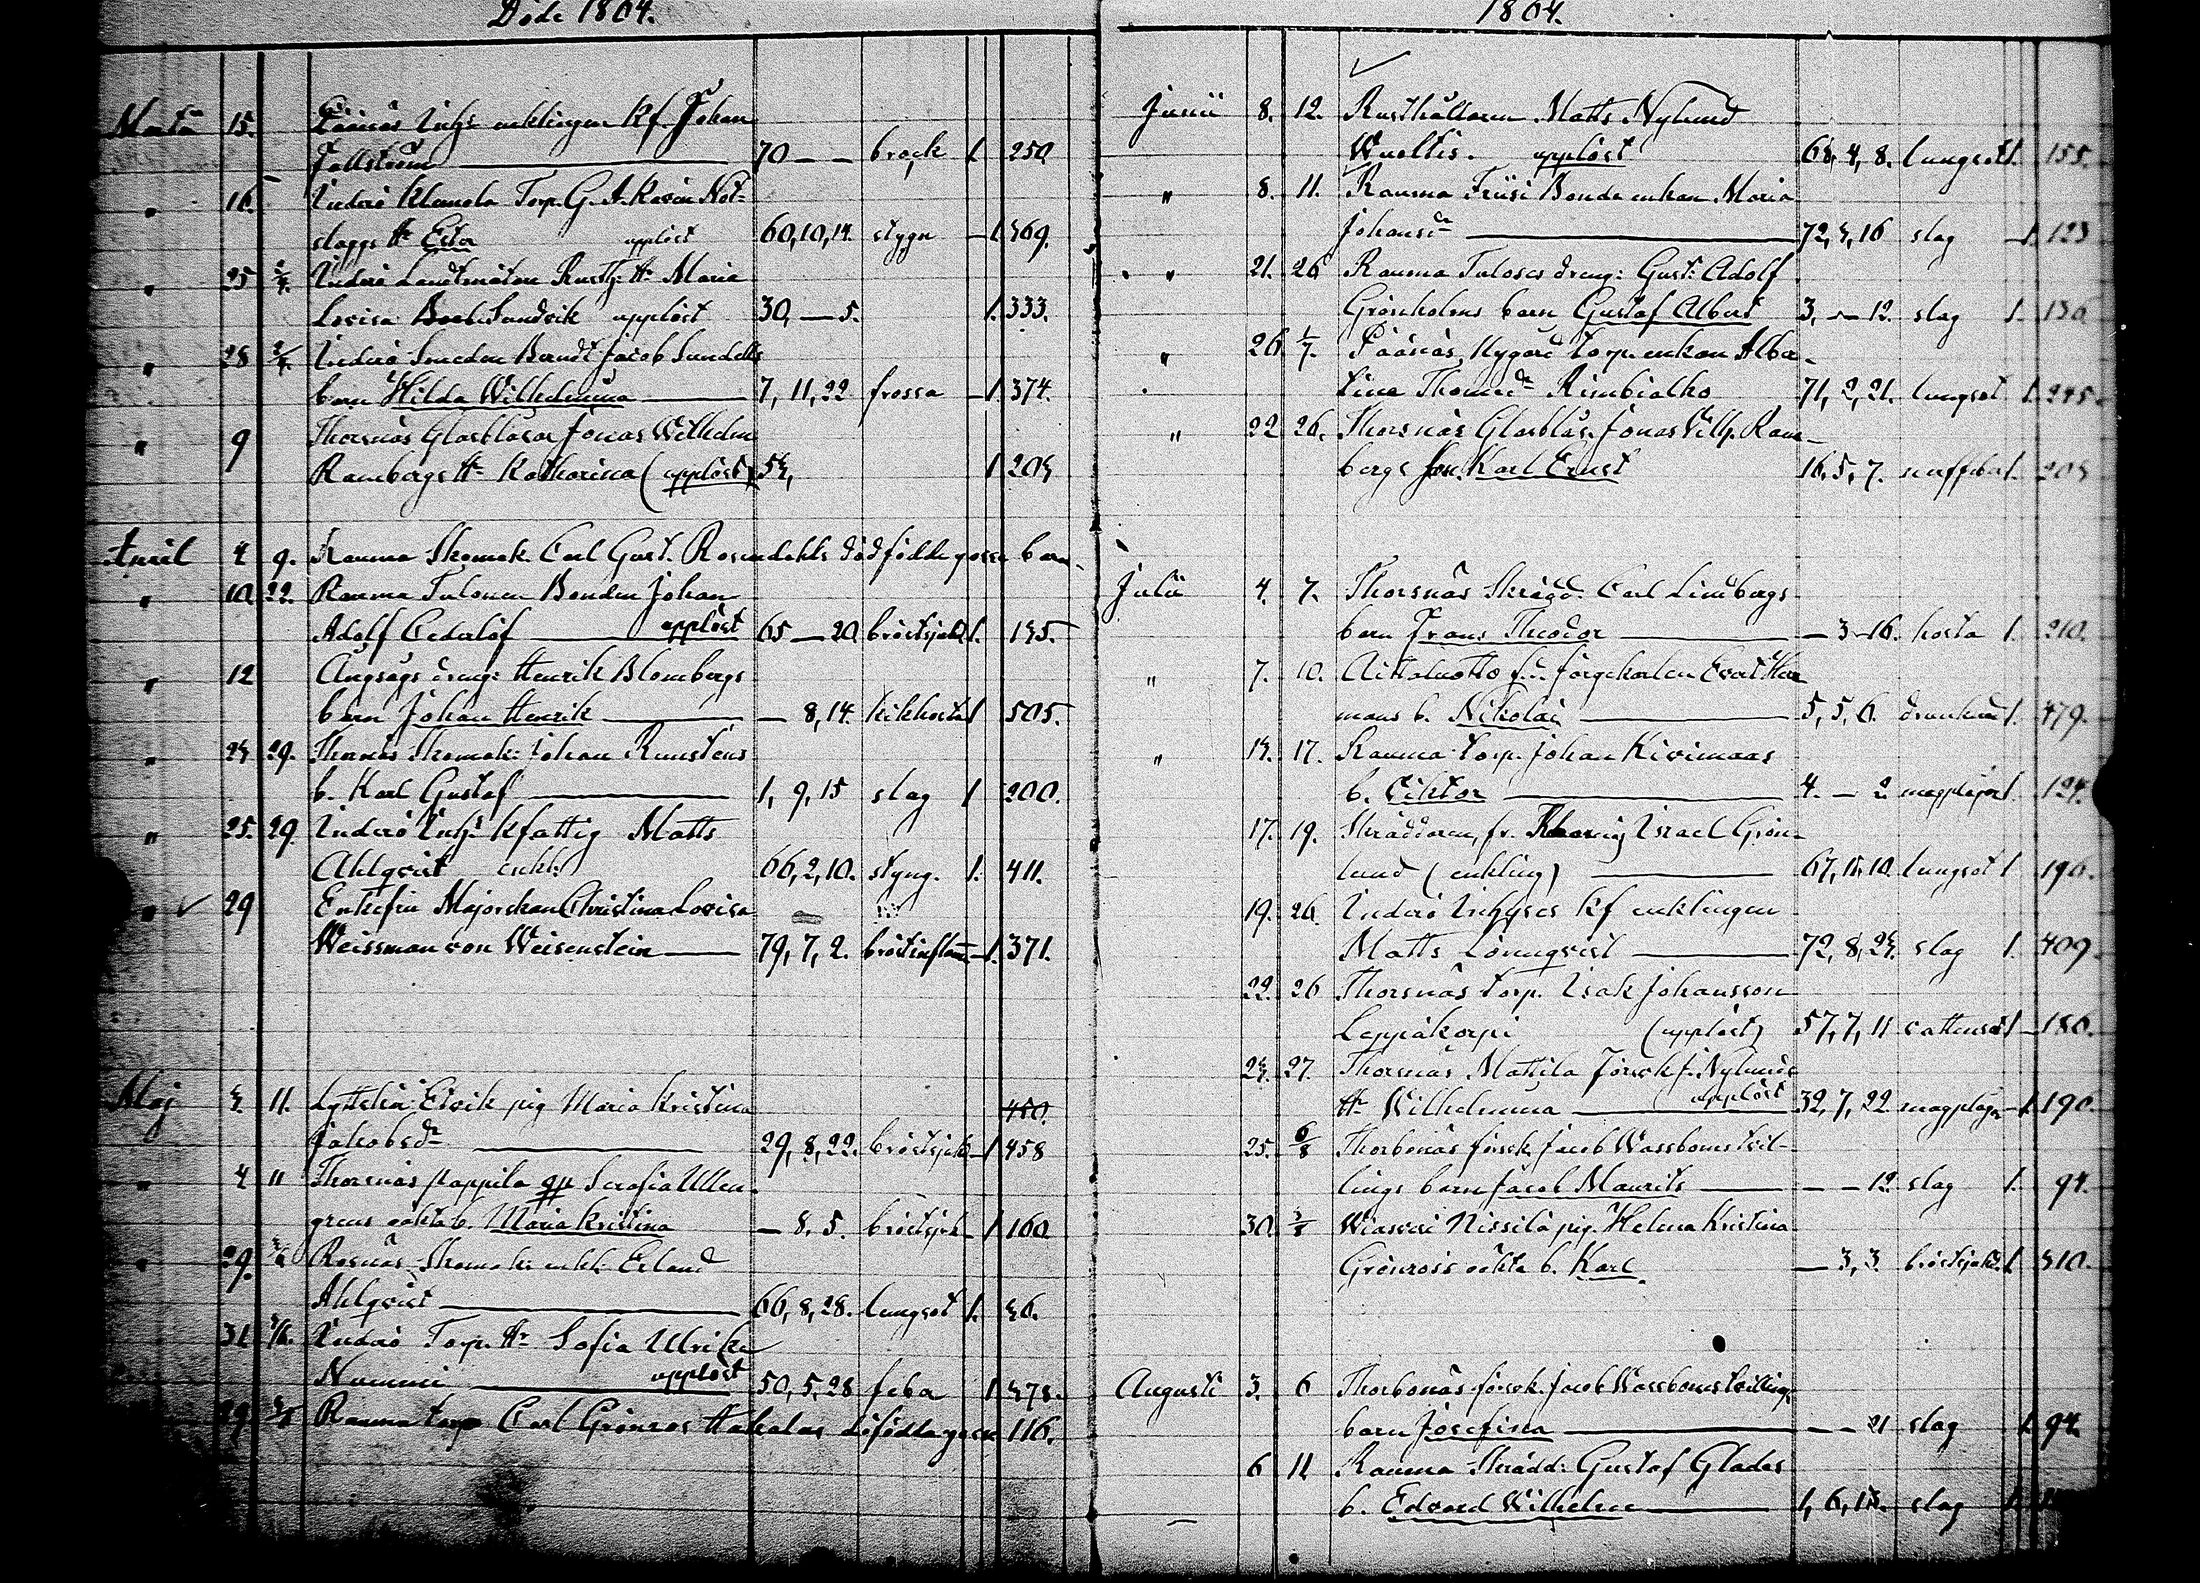 Döde 1864.
Martii 15. Påånäs Inhys enklingen Kf. Johan
Fallström 70 — — brock 1. 250
" 16. Inderö Klemola Torp. G. A. Karin Not-
slaggs Hu Ester upplöst 60,10,14. stygn 1. 369.
" 25 2/4. Inderö Landtmätan Rusth: Hu Maria
Lovisa Sundvik upplöst 30, — 5. 1. 333.
" 28 2/4. Inderö Smeden Berndt Jacob Sundells
barn Hilda Wilhelmina 7, 11, 22 frossa 1. 374.
" 9 Thorsnäs Glasblåsar Jonas Wilhelm
Rambergs Hu Katharina (upplöst) 54, 1 204
April 4 9. Rauma Skomak. Carl Gust. Rosendahls dödfödde gosse barn.
" 10 22. Rauma Tulonen Bonden Johan
Adolf Cederlöf upplöst 65 — 20 bröstsjukd 1. 135.
" 12 Ångsågs dreng: Henrik Blombergs
barn Johan Henrik — 8, 14. kikhosta 1 505.
" 24 29. Thorsnäs Skomak: Johan Runstens
b. Karl Gustaf 1, 9, 15 slag 1 200.
" 25. 29. Inderö Inhs kfattig Matts
Ahlqvist enkl. 66, 2, 10. styng. 1. 411.
" 29 Enkefru Majorskan Christina Lovisa
Weissman von Weisenstein 79, 7, 2. bröstinflam 1. 371.
Maj 4. 11. Lyttskär Elvik pig Maria Kristina 450.
Jakobsdr 29, 8, 22. bröstsjuk 1 458
" 4 11 Thorsnäs pappila qp Serafia Ullen-
grens oäkta b. Maria Kristina — 8, 5. bröstsjuk 1 160
" 29. Rosnäs Skomak: enkl: Erland
Ahlqvist 66, 8, 28. lungsot 1. 36.
31 Inderö Torp. Hu Sofia Ulrika
Nummi upplöst 50, 5, 28 feber 1. 378.
29. Rauma torp Carl Grönros Hakalas döfödde gosse 116.
1864.
Junii 8. 12. Rusthållaren Matts Nylund
Wuoltis. upplöst 68, 4, 8. lungsot 1. 155.
" 8. 11. Rauma Friisi Bonde enkan Maria
Johansdr 72, 4, 16 slag 1. 123
" 21. 26 Rauma Tuloses dreng: Gust: Adolf
Grönholms barn Gustaf Albert 3, — 12. slag 1. 136
" 26 1/7. Påånäs Nygård torp. enkan Alber-
tina Thomasdr Rimbialho 71, 2, 21. lungsot 1. 245.
" 22 26. Thorsnäs Glasblås. Jonas Vilh. Ram-
bergs son Karl Ernst 16, 5, 7. 1. 204
Julii 4. 7. Thorsnäs Skrädd. Carl Lindbergs
barn Frans Theodor — 3 16. hosta 1. 210.
" 7. 10. f.d. färgekarlen Evert Her-
mans b. Nikolai 5, 5, 6. drunknad 1. 479.
" 14. 17. Rauma torp. Johan Kivimaas
b. Viktor 4. — 2. magplågor 1. 124.
17. 19. Skräddaren, fr. Israel Grön-
lund (enkling) 67, 11, 10. lungsot 1 190.
19. 26. Inderö Inhyses kf enklingen
Matts Lönnqvist 72, 8, 24. slag 1. 409
22. 26 Thorsnäs torp. Isak Johansson
Leppäkorpi (upplöst) 57, 7, 11 vattensot 1 180.
24. 27. Thorsnäs Mattila Försvkf. Nylunds
Hu Wilhelmina upplöst 32, 7, 22 magplågor 1. 190.
25. 6/8 Thorbonäs försvk Jacob Wassboms tvil-
lings barn Jacob Maurits — — 12. slag 1. 94.
30. Wiasvesi Nissilä pig. Helena Kristina
Grönross oäkta b. Karl — 3, 3. bröstsjukd. 1. 310.
Augusti 3. 6 Thorbonäs försvk. Jacob Wassboms tvillings
barn Josefina — — 21 slag 1. 94.
6 11 Rauma Skrädd: Gustaf Glades
b. Edvard Wilhelm 1, 6, 13. slag 1.